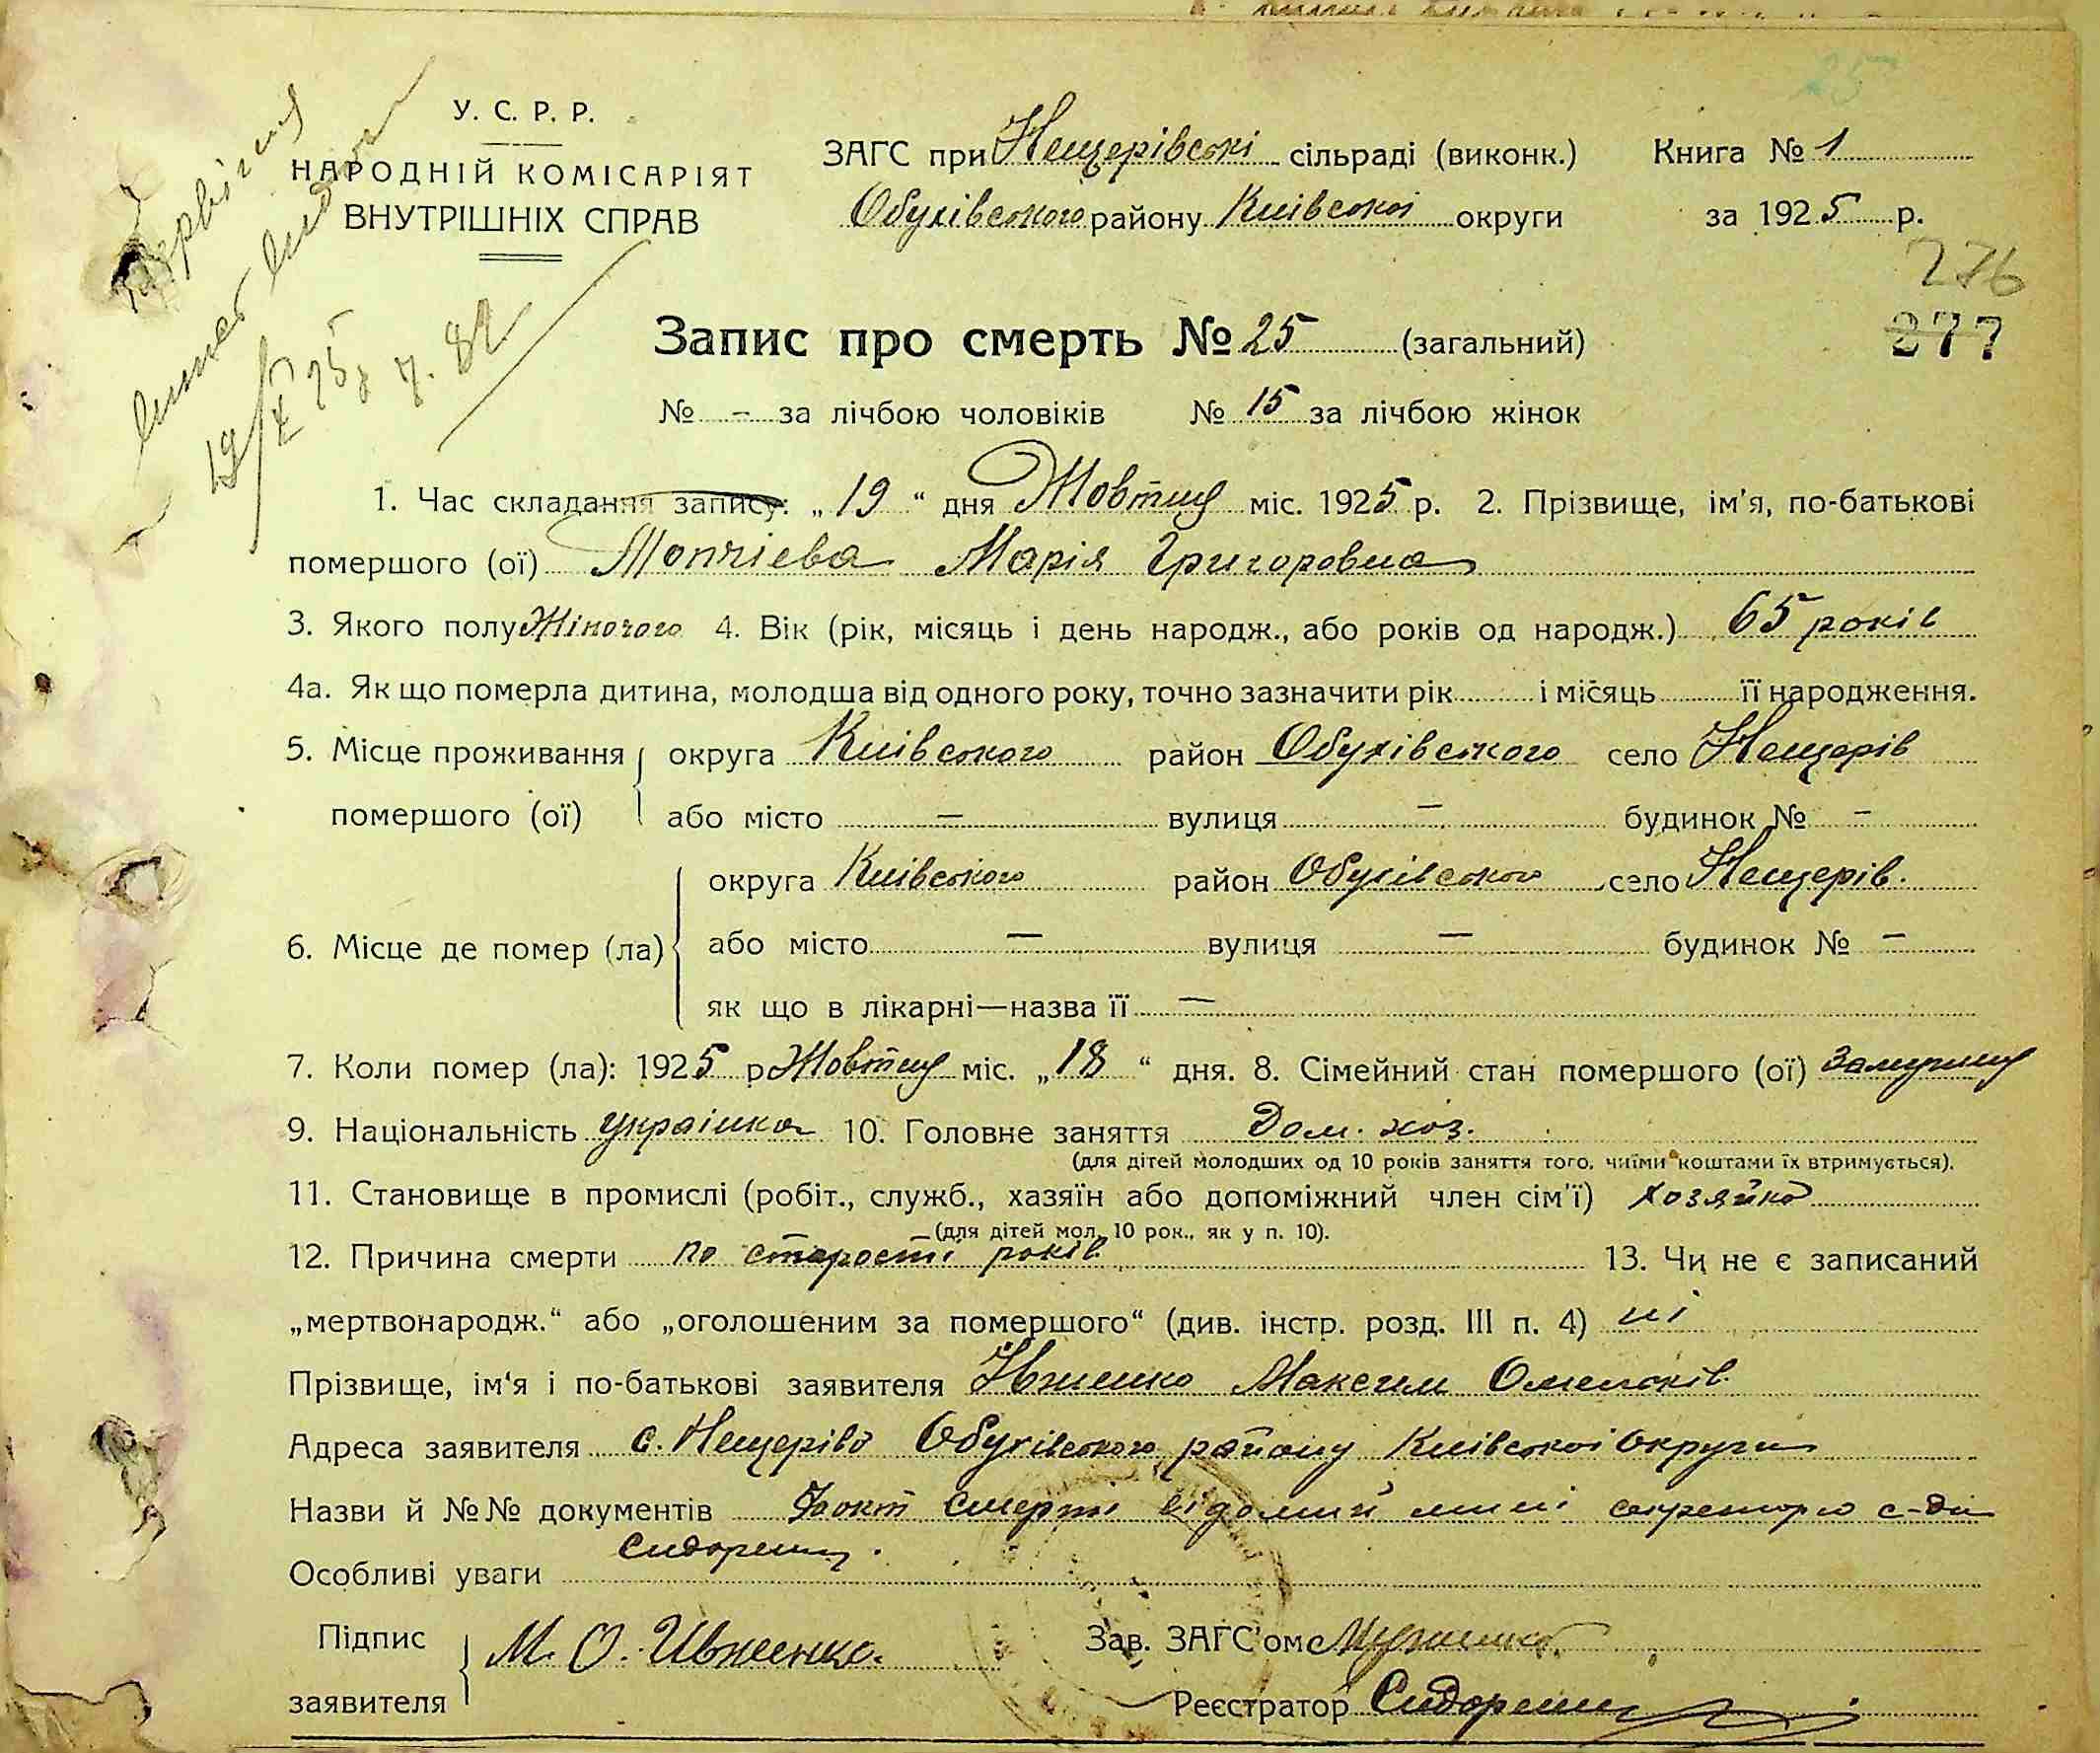 25
У. С. Р. Р.
НАРОДНІЙ КОМІСАРІЯТ
ВНУТРІШНІХ СПРАВ
ЗАГС при Нещерівські сільраді (виконк.) Книга № 1
Обухівського району Київської округи за 1925 р.
276
277
19/X 25 р. 82
Запис про смерть № 25 (загальний)
№ - за лічбою чоловіків № 15 за лічбою жінок
1. Час складання запису: „19“ дня Жовтня міс. 1925 р. 2. Прізвище, ім'я, по-батькові
помершого (ої) Марія Григоровна
3. Якого полу Жіночого 4. Вік (рік, місяць і день народж., або років од народж.) 65 років
4а. Як що померла дитина, молодша від одного року, точно зазначити рік і місяць її народження.
5. Місце проживання округа Київського район Обухівського село Нещерів
помершого (ої) або місто — вулиця — будинок № –
округа Київського район Обухівського село Нещерів.
6. Місце де помер (ла) або місто — вулиця — будинок № –
як що в лікарні—назва її —
7. Коли помер (ла): 1925 р Жовтня міс. „18“ дня. 8. Сімейний стан помершого (ої) Замужня
9. Національність українка 10. Головне заняття Дом. хоз.
(для дітей молодших од 10 років заняття того, чиїми коштами їх втримується).
11. Становище в промислі (робіт., служб., хазяїн або допоміжний член сім'ї) хозяйка
(для дітей мол. 10 рок., як у п. 10).
12. Причина смерти по старости років 13. Чи не є записаний
„мертвонародж.“ або „оголошеним за помершого“ (див. інстр. розд. III п. 4) ні
Прізвище, ім'я і по-батькові заявителя Івженко Максим Омельків
Адреса заявителя с. Нещерів Обухівського району Київської Округи
Назви й №№ документів Факт смерті відомий мені секретарю с-ди
Сидоренку.
Особливі уваги
Підпис М. О. Ивженко. Зав. ЗАГС'ом
заявителя Реєстратор Сидоренко